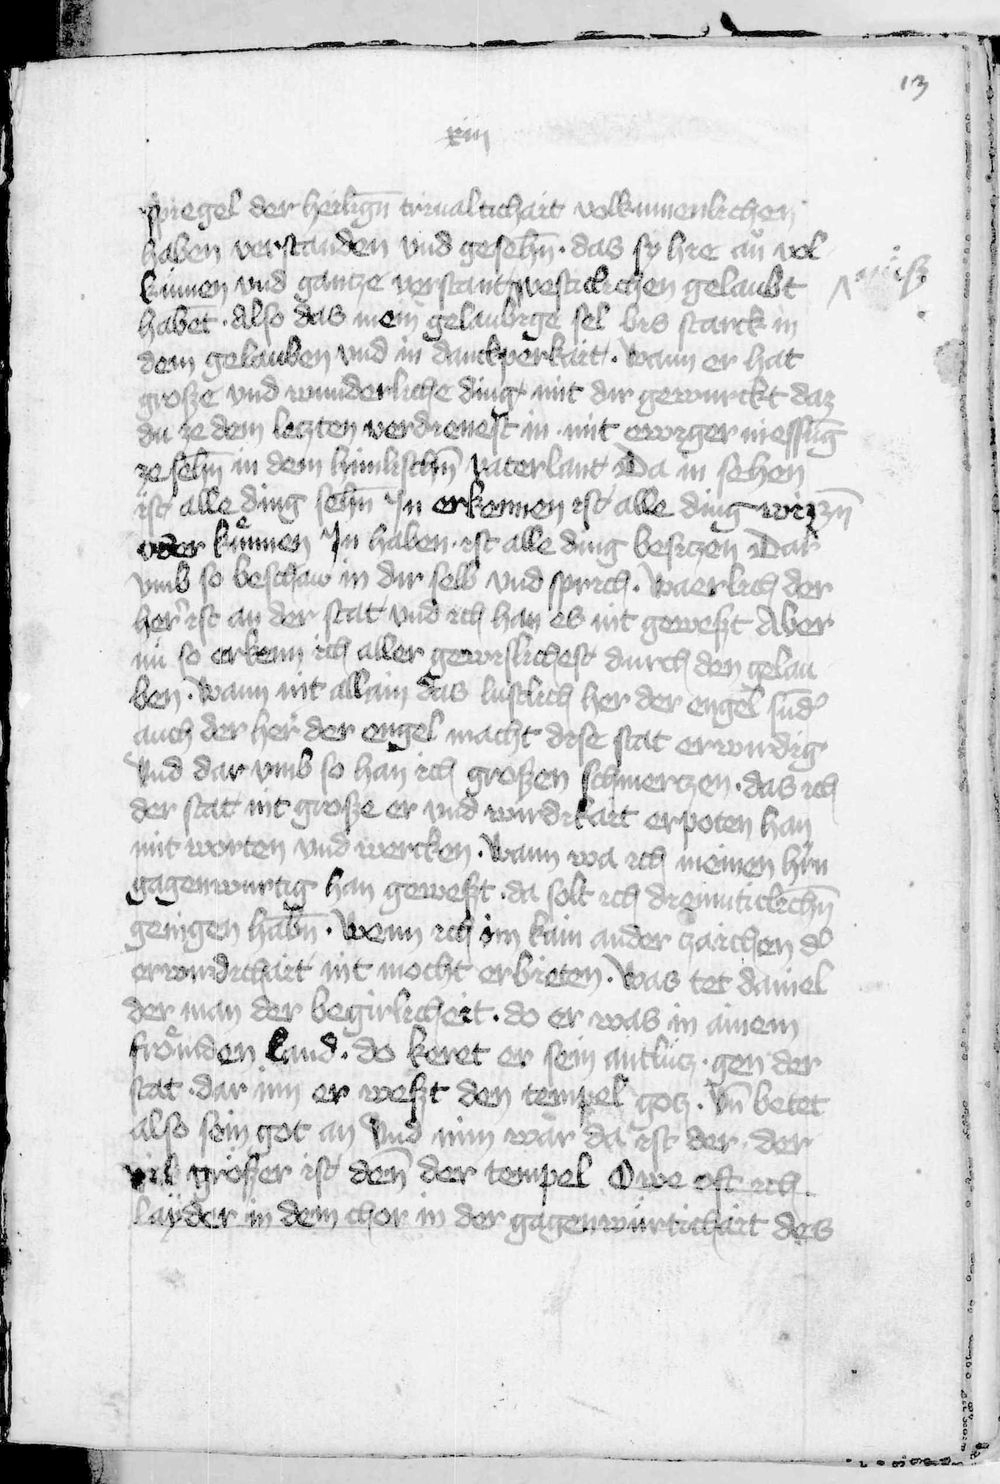 13
xiii
spiegel der heilign̄ triualtichait volkumenlichen
haben verstanden vnd gesehn̄ · das sy hie an vol
kumen vnd gantze verstant vesticlichen gelaubt
habet · Also das mein gelaubige sel bis starck in
dem gelauben vnd in danckperkait · Wann er hat
grosze vnd wunderliche ding mit dir gewurckt daz
du ze dem letzten verdienest in mit ewiger niessūg
ze sehn̄ in dem himlischn̄ vaterlant Da in sehen
ist alle ding sehn̄ In erkennen ist alle ding wizzn̄
oder kůnnen In haben · ist alle ding besitzen Dar
vmb so beschaw in dir selb vnd sprich · Waerlich der
her ist an der stat vnd ich han es nit gewest Aber
nu so erkenn ich aller gewislichest durch den gelau
ben · Wann nit allain das lustlich her der engel sund
auch der her der engel macht dise stat erwirdig
Vnd dar vmb so han ich groszen schmertzen · das ich
der stat nit grosze er vnd wirdikait erpoten han
mit worten vnd wercken · Wann wa ich meinen hern
gagenwurtig han gewest · da solt ich diemuticlichn̄
geingen habn̄ · Wenn ich im kain ander zaichen d
erwirdichait nit mocht erbieten · Was tet daniel
der man der begirlicheit · do er was in ainem
frőmden land · do keret er sein antlütz · gen der
stat · dar inn er west den tempel gotz · Vn̄ betet
also sein got an Vnd nim war da ist der · der
vil grősser ist denn̄ der tempel Owe oft ich
layder in dem chor in der gagenwürtichait des